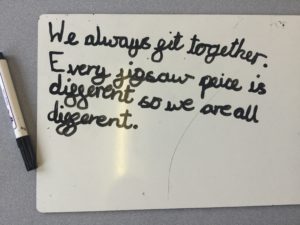 We always fit together.
Every jigsaw peice is
different so we are all
different.